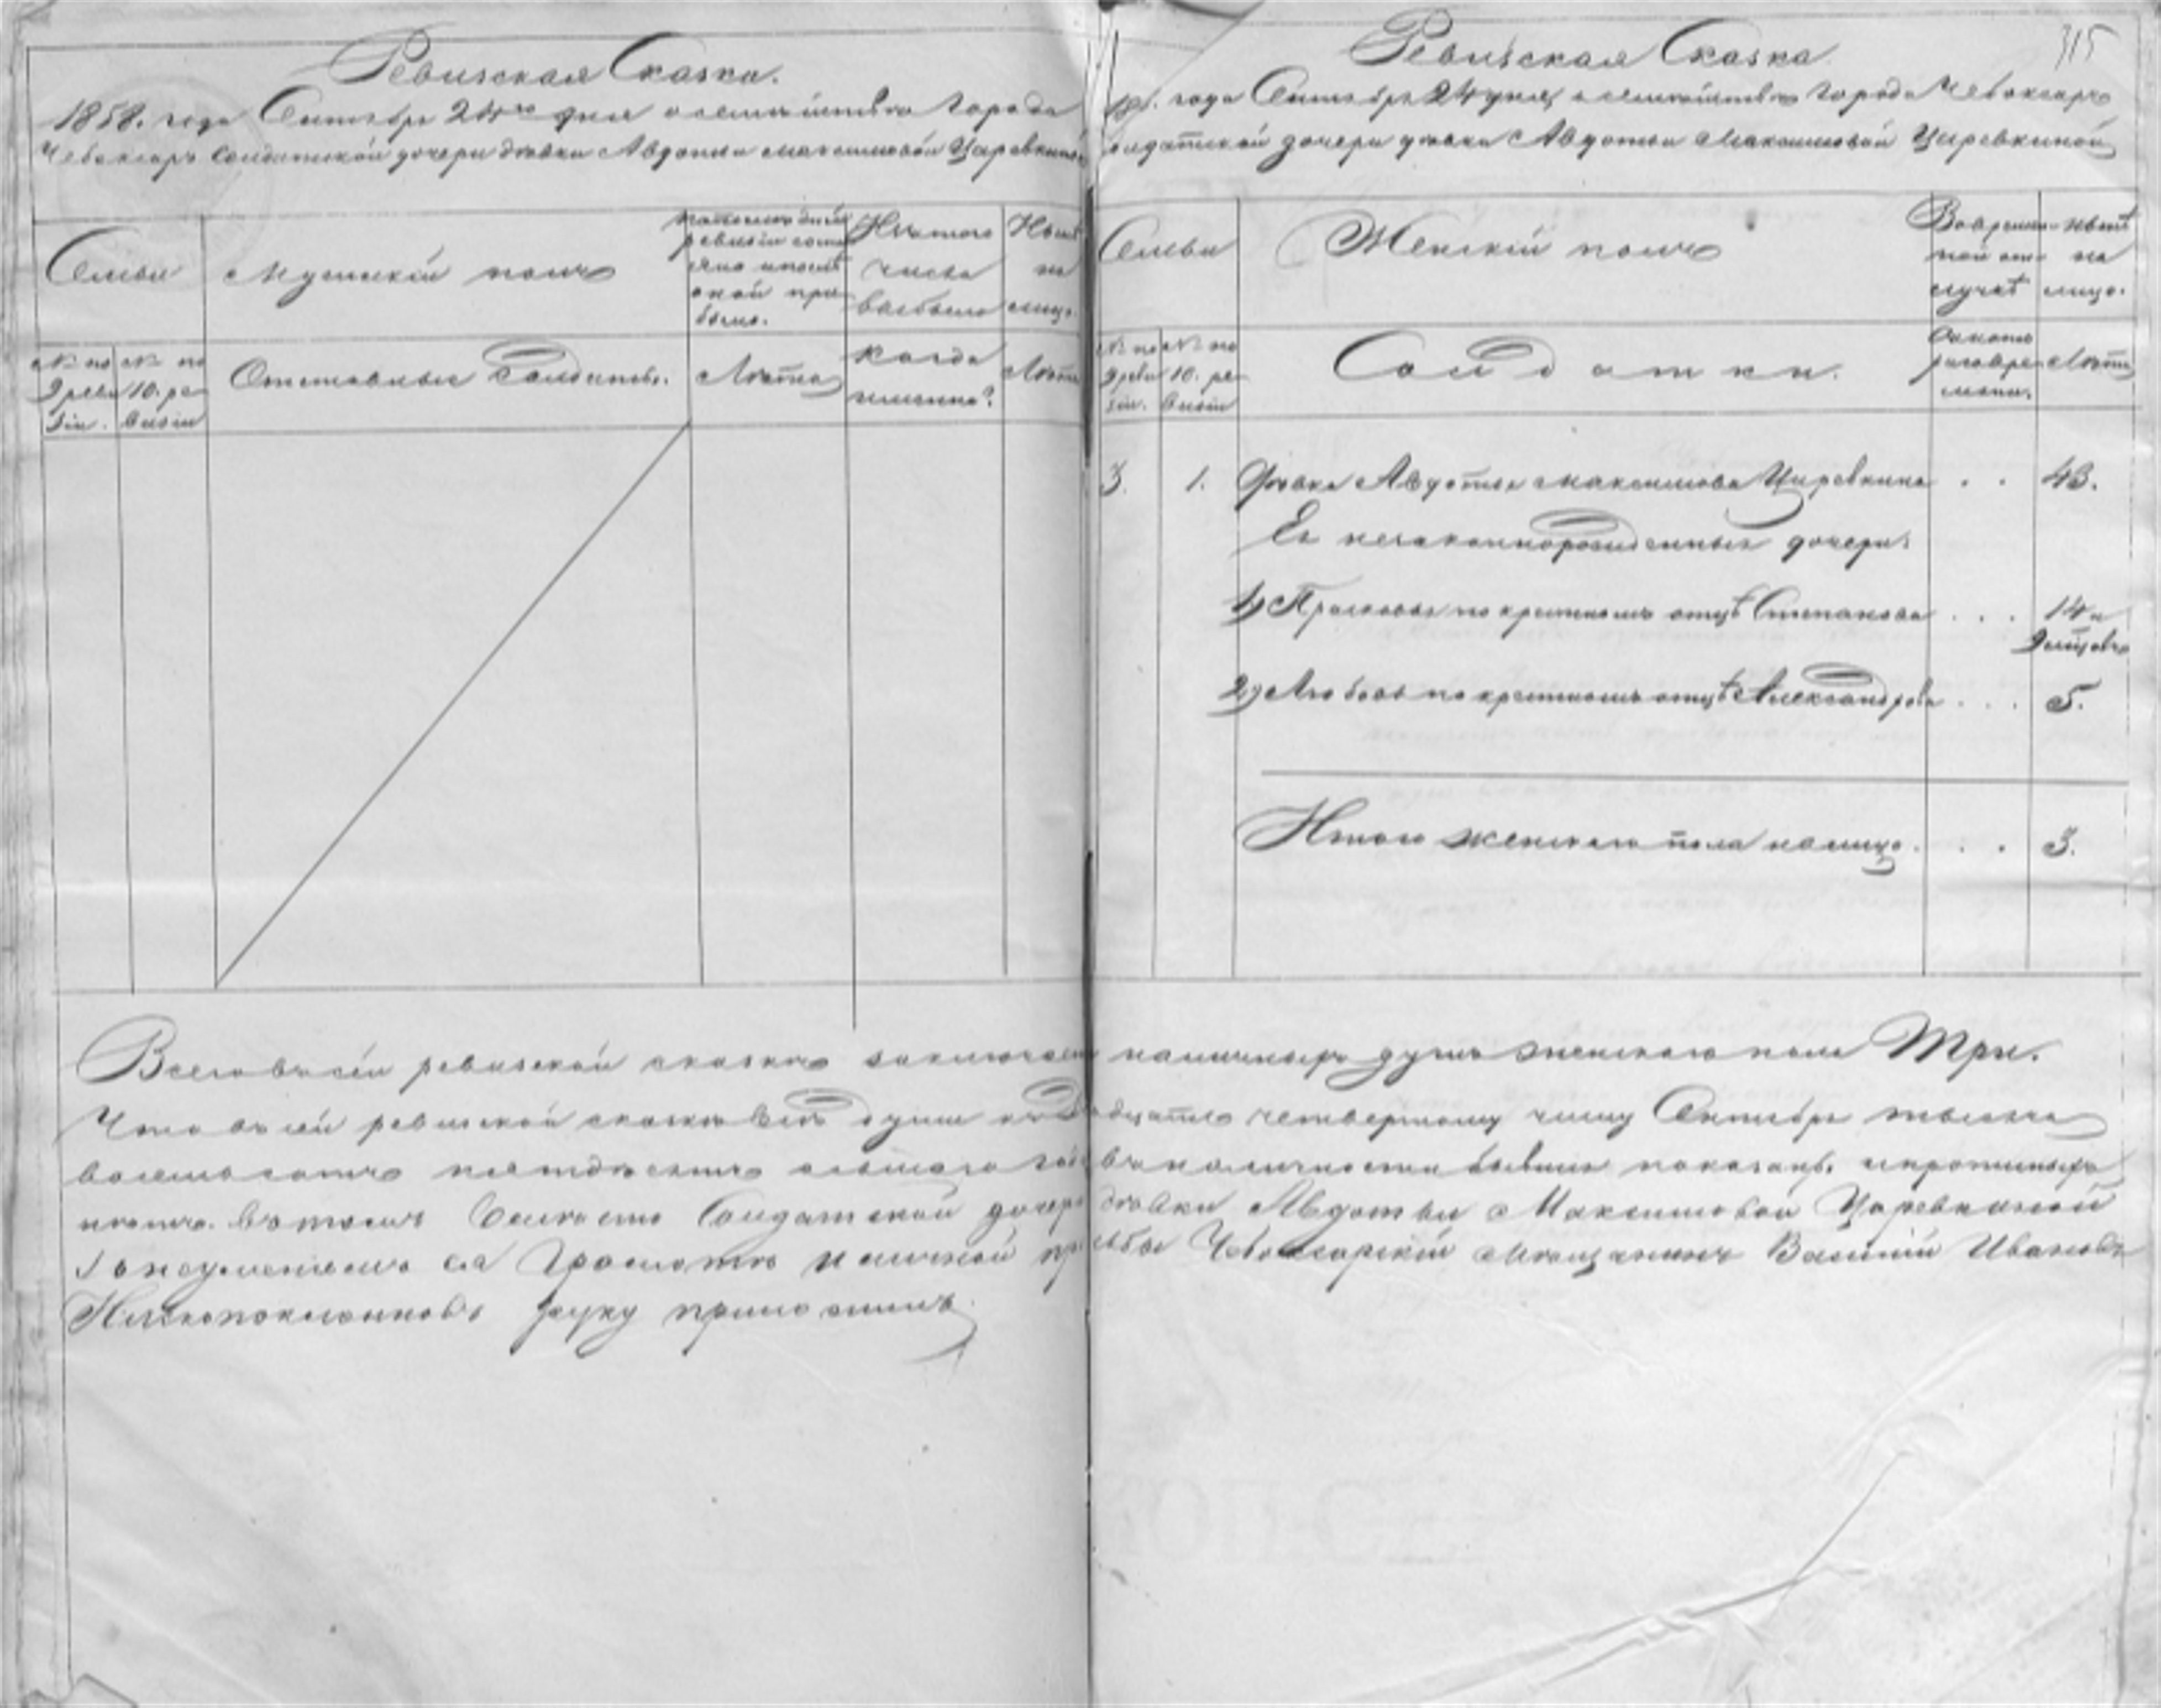 Ревизская Сказка.
1858. года Октября 24го дня о семействе города
Чебоксар Солдатской дочери девки Авдотьи Максимовой Царевкиной
Семьи
Мужескій полъ
ревизіи
было.
Изъ того
числа
выбыло
Ныне
на
лицо
№ по
9 реви
зіи.
№ по
10. ре-
визіи
Отставные Солдаты.
Лета
когда
именно?
Лета
Ревизская Сказка
315
года Октября 24 дня, о семействе города Чебоксаръ
Солдатской дочери девки Авдотьи Максимовой Царевкиной
Семьи
Женскій полъ
Во времен-
ной от-
лучке
ныне
на
лицо.
№ по
9 реви
зіи.
№ по
10. ре-
визіи
Солдатки.
Лета
3. 1. Девка Авдотья Максимова Царевкина . . 43.
Ея незаконнорожденныя дочери:
1) Прасковья по крестномъ отцѣ Степанова . . . 14 и
9 месяцовъ
2) Любовь по крестномъ отцѣ Александрова . . . 5.
Итого женскаго пола налицо . . . 3.
Всего въ сей ревизской сказке заключается наличныхъ душъ женскаго пола Три.
Что въ сей ревизской сказке все души къ двадцать четвертому числу Октября тысяча
восемьсотъ пятдесятъ осьмаго года въ наличности бывшія показаны. и пропущенныхъ
нетъ. въ томъ вместо Солдатской дочери девки Авдотьи Максимовой Царевкиной
за неуменіемъ ея Грамоте и личной прозьбе Чебоксарскій мещанинъ Василій Ивановъ
руку приложилъ